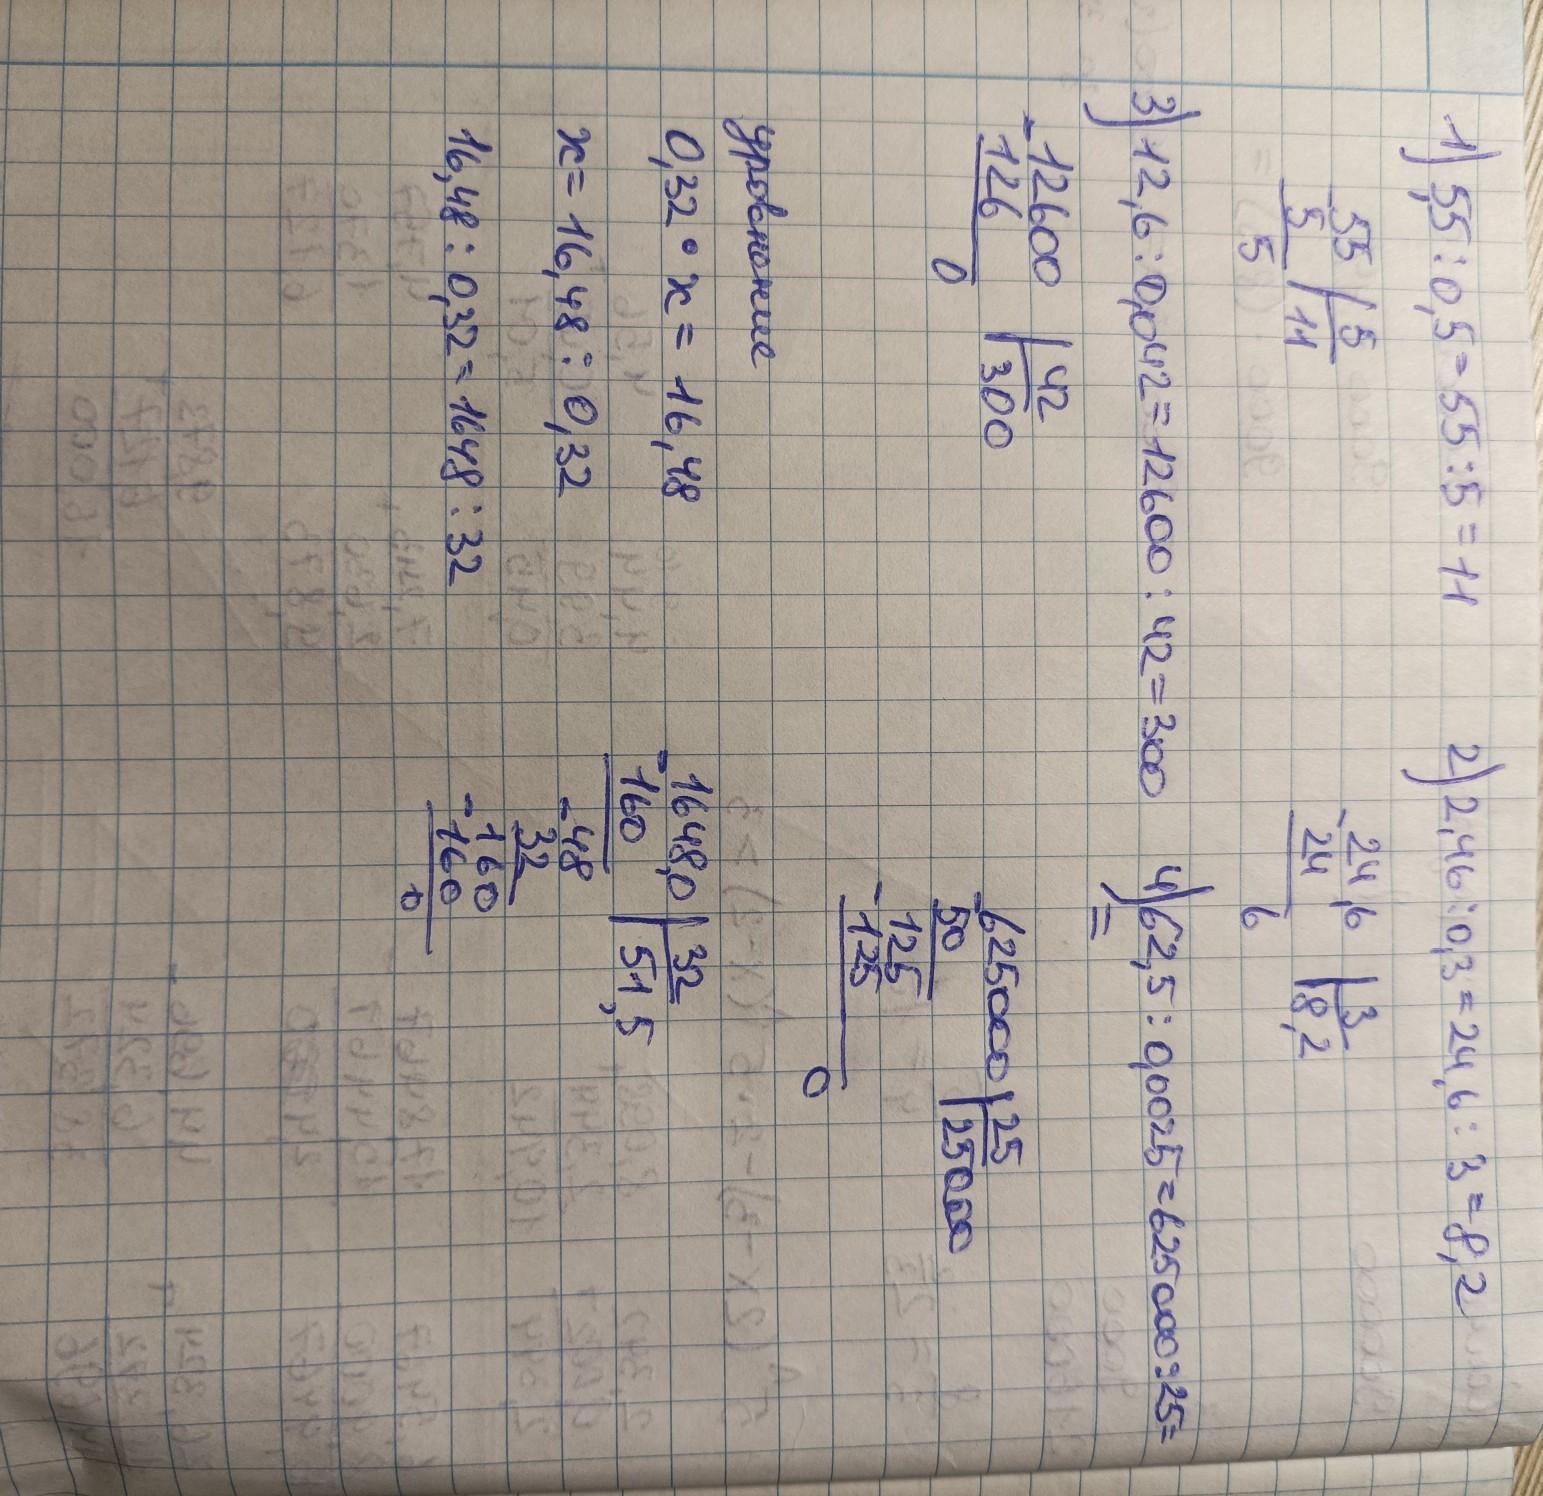 1) 5,55 : 0,5 = 55 : 5 = 11
2) 2,46 : 0,3 = 24,6 : 3 = 8,2
-55 | 5
5 | 11
5
-24,6 | 3
24 | 8,2
6
3) 12,6 : 0,042 = 12600 : 42 = 300
4) 62,5 : 0,0025 = 625000 : 25 =
=
-12600 | 42
126 | 300
0
-625000 | 25
50 | 25000
125
-125
0
уравнение
0,32 · x = 16,48
x = 16,48 : 0,32
16,48 : 0,32 = 1648 : 32
-1648,0 | 32
160 | 51,5
-48
32
-160
160
0